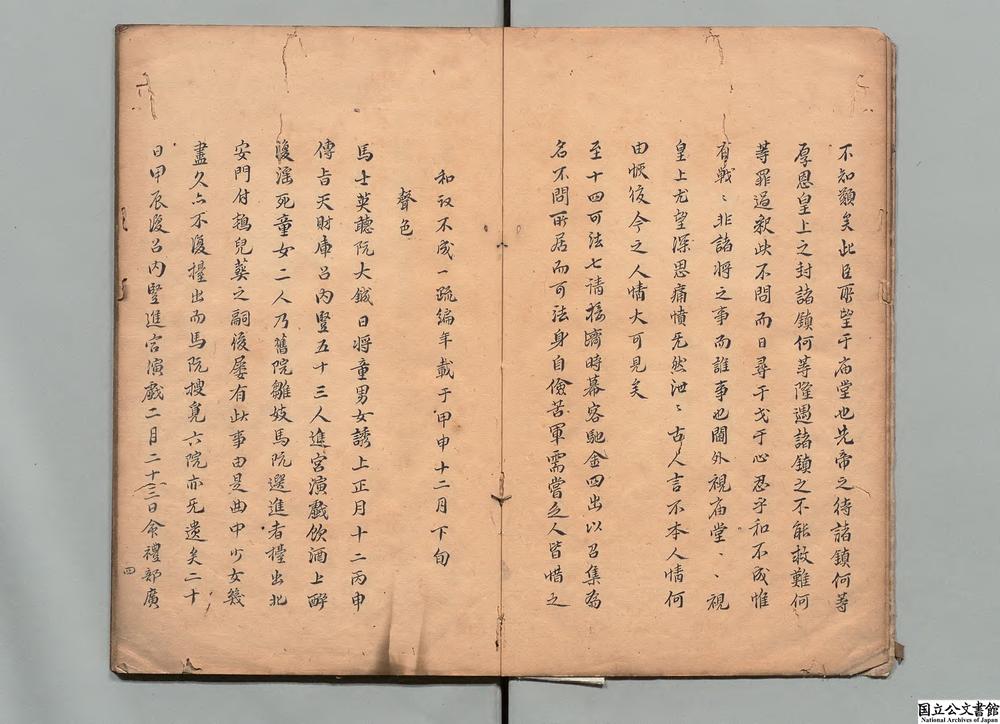 不知類矣此臣所望于庙堂也先帝之待諸鎮何等
厚恩皇上之封諸鎮何等隆遇諸鎮之不能救難何
等罪過釈此不問而日尋干戈于心忍乎和不成惟
有戰〻非諸将之事而誰事也閫外視庙堂〻視
皇上尤望深思痛憤旡然泄〻古人言不本人情何
由恢復今之人情大可見矣
至十四可法七请掞濟時幕客馳金四出以召集為
名不問所居而可法身自儉苦軍需當之人皆惜之
和议不成一疏编年載于甲申十二月下旬
聲色
馬士英聽阮大鋮日将童男女誘上正月十二丙申
傳㫖天財庫召内豎五十三人進宮演戲饮酒上醉
後滛死童女二人乃舊院雛妓馬阮選進者擡出北
安門付鴇兒葬之嗣後屡有此事由是曲中少女幾
盡久亦不復擡出而馬阮搜覓六院亦旡遗矣二十
日甲辰復召内豎進宮演戲二月二十三日令禮部廣
四
国立公文書館
National Archives of Japan